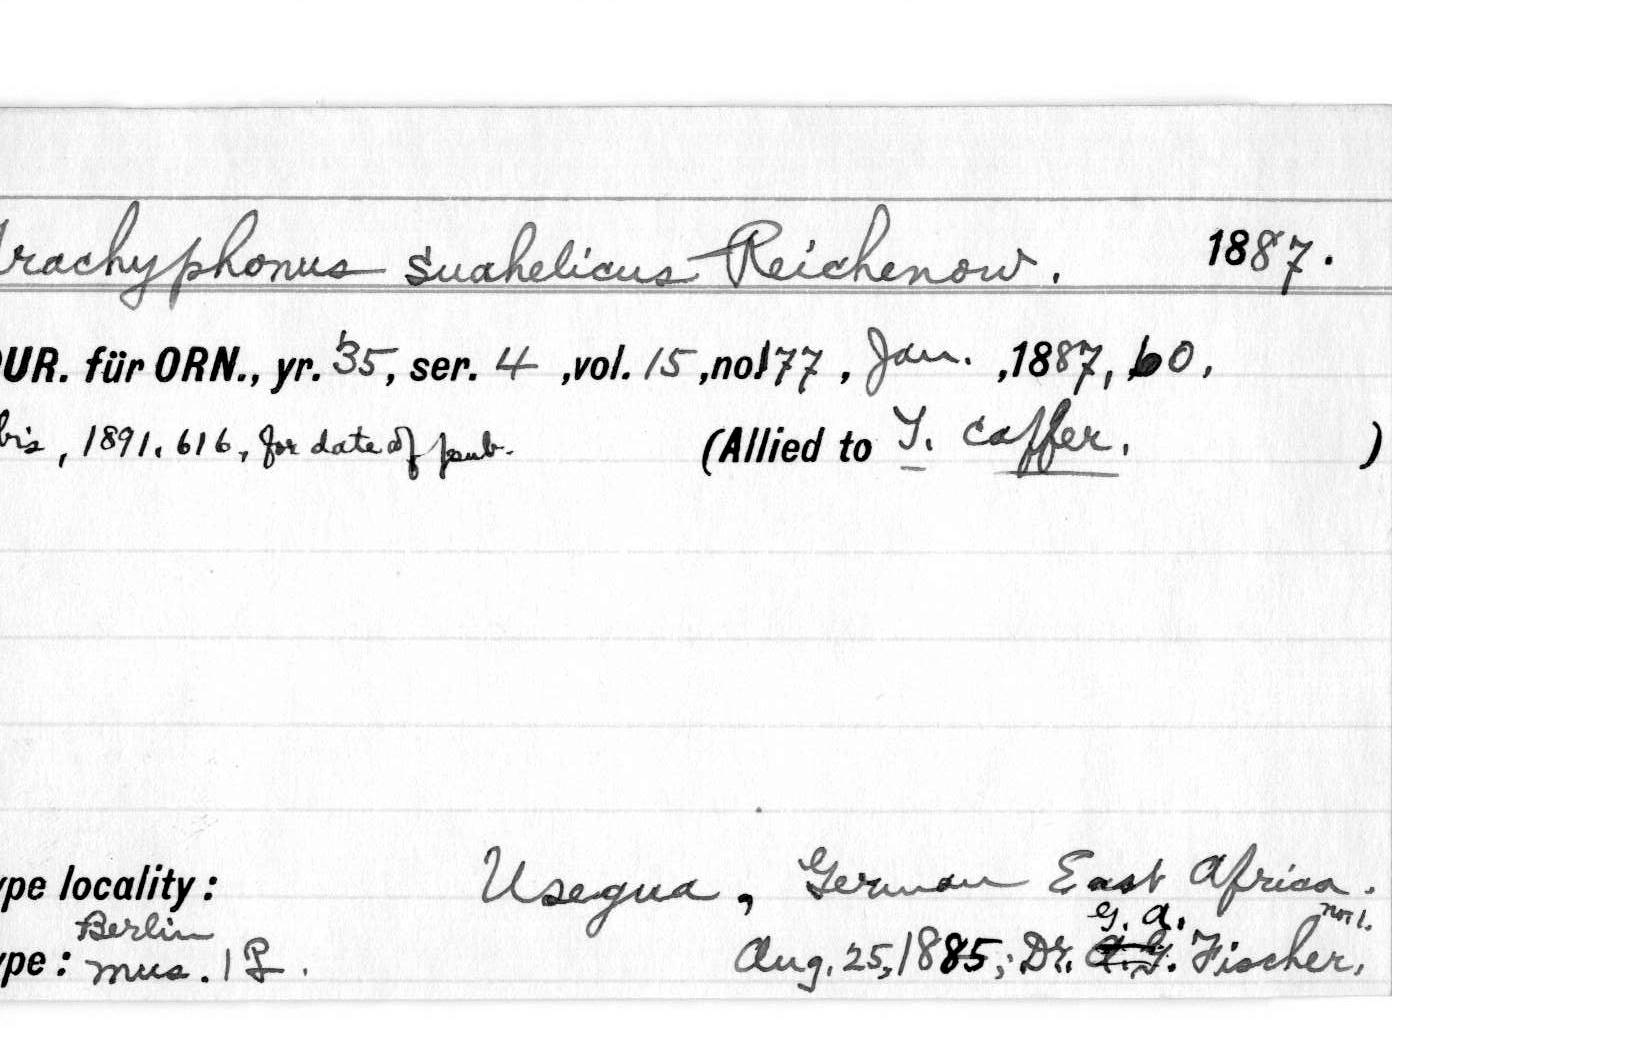 rachyphonus suahelicus Reichenow. 1887.
UR. für ORN., yr. 35, ser. 4 ,vol. 15 ,no.177 , Jan. ,1887, 60,
bis, 1891. 616, for date of pub. (Allied to T. caffer. )
ype locality: Usegua, German East Africa.
Berlin G. A. no. 1.
ype: mus. 1 Aug. 25, 1885; Dr. Fischer.